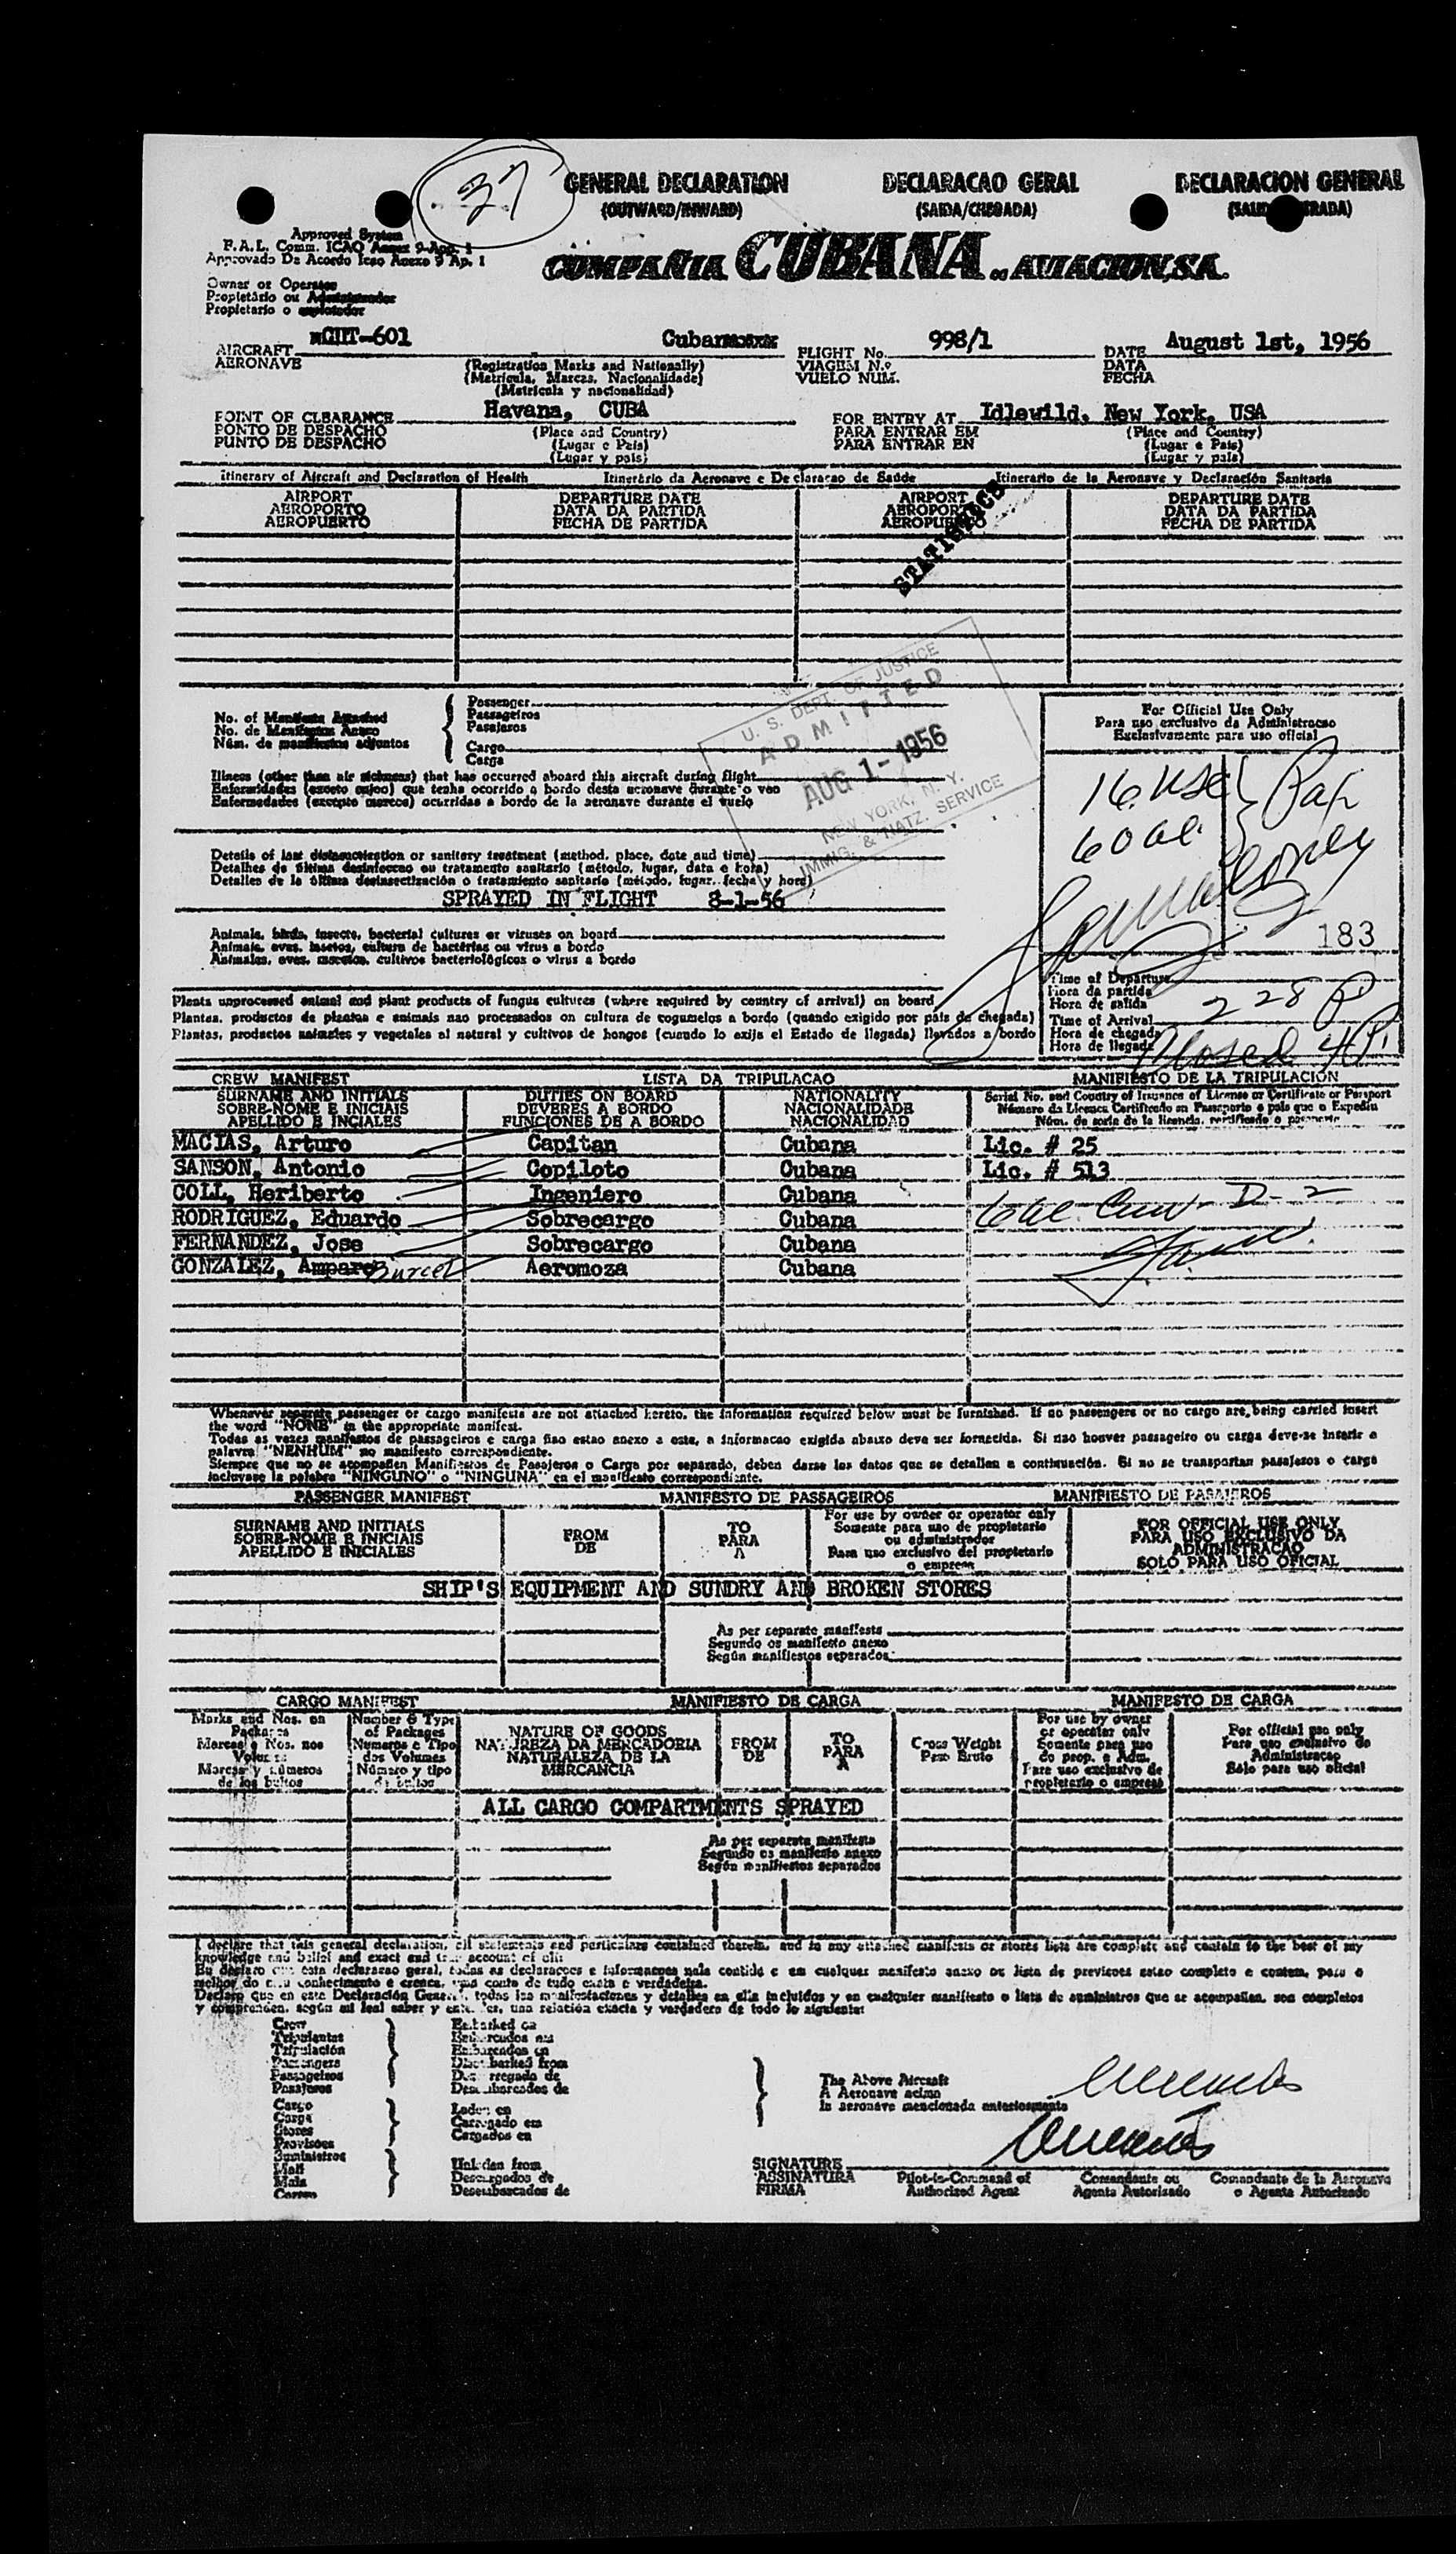 37
GENERAL DECLARATION DECLARACAO GERAL DECLARACION GENERAL
(OUTWARD/INWARD) (SAIDA/CHEGADA)
Approved System
F.A.L. Comm. ICAO Annex 9-App. 1
Approvado De Acordo Icao Anexo 9 Ap. 1
COMPAÑIA CUBANA DE AVIACION, S.A.
Owner or Operator
Propietário ou
Propietario o
CUT-601 Cubana 998/1 August 1st, 1956
AIRCRAFT FLIGHT No. DATE
AERONAVE (Registration Marks and Nationally) VIAGEM N.º DATA
(Matrícula, Marcas, Nacionalidade) VUELO NUM. FECHA
(Matricula y nacionalidad)
POINT OF CLEARANCE Havana, CUBA FOR ENTRY AT Idlewild, New York, USA
PONTO DE DESPACHO (Place and Country) PARA ENTRAR EM (Place and Country)
PUNTO DE DESPACHO (Lugar e Pais) PARA ENTRAR EN (Lugar e Pais)
(Lugar y pais) (Lugar y pais)
Itinerary of Aircraft and Declaration of Health Itinerário da Aeronave e Declaracao de Saúde Itinerario de la Aeronave y Declaración Sanitaria
AIRPORT DEPARTURE DATE AIRPORT DEPARTURE DATE
AEROPORTO DATA DA PARTIDA AEROPORTO DATA DA PARTIDA
AEROPUERTO FECHA DE PARTIDA AEROPUERTO FECHA DE PARTIDA
STATISTICS
U. S. DEPT. OF JUSTICE
ADMITTED
AUG 1 - 1956
NEW YORK, N. Y.
IMMIG. & NATZ. SERVICE
No. of Manifests Attached
No. de Manifestos Anexo
Núm. de manifiestos adjuntos
Passenger
Passageiros
Pasajeros
Cargo
Carga
For Official Use Only
Para uso exclusivo da Administracao
Exclusivamente para uso oficial
16 USC
6 Pax
183
Illness (other than air sickness) that has occurred aboard this aircraft during flight
Enfermidades (exceto enjoo) que tenha ocorrido a bordo desta aeronave durante o voo
Enfermedades (excepto mareos) ocurridas a bordo de la aeronave durante el vuelo
Details of last disinsectization or sanitary treatment (method, place, date and time)
Detalhes da última desinfeccao ou tratamento sanitario (método, lugar, data e hora)
Detalles de la última desinsectización o tratamiento sanitario (método, lugar, fecha y hora)
SPRAYED IN FLIGHT 8-1-56
Animals, birds, insects, bacterial cultures or viruses on board
Animais, aves, insetos, cultura de bactérias ou virus a bordo
Animales, aves, insectos, cultivos bacteriológicos o virus a bordo
Plants unprocessed animal and plant products of fungus cultures (where required by country of arrival) on board
Plantas, productos de plantas e animais nao processados on cultura de cogumelos a bordo (quando exigido por pais de chegada)
Plantas, productos animales y vegetales al natural y cultivos de hongos (cuando lo exija el Estado de llegada) llevados a bordo
Time of Departure
Hora da partida
Hora de salida
2 28 P
Time of Arrival
Hora de chegada
Hora de llegada
Closed 4P.
CREW MANIFEST LISTA DA TRIPULACAO MANIFIESTO DE LA TRIPULACION
SURNAME AND INITIALS DUTIES ON BOARD NATIONALITY Serial No. and Country of Issuance of License or Certificate or Passport
SOBRE-NOME E INICIAIS DEVERES A BORDO NACIONALIDADE Número da Licenca Certificado ou Passaporte e pais que o Expediu
APELLIDO E INCIALES FUNCIONES DE A BORDO NACIONALIDAD Núm. de serie de la licencia, certificado o pasaporte
MACIAS, Arturo Capitan Cubana Lic. # 25
SANSON, Antonio Copiloto Cubana Lic. # 513
COLL, Heriberto Ingeniero Cubana
RODRIGUEZ, Eduardo Sobrecargo Cubana D-2
FERNANDEZ, Jose Sobrecargo Cubana
GONZALEZ, Amparo Aeromoza Cubana
Whenever separate passenger or cargo manifests are not attached hereto, the information required below must be furnished. If no passengers or no cargo are being carried insert
the word "NONE" in the appropriate manifest.
Todas as vezes manifestos de passageiros e carga nao estao anexo a este, a informacao exigida abaixo deve ser fornecida. Si nao houver passageiro ou carga deve-se inserir a
palavra "NENHUM" no manifesto correspondente.
Siempre que no se acompañen Manifiestos de Pasajeros o Carga por separado, deben darse los datos que se detallan a continuación. Si no se transportan pasajeros o carga
incluyase la palabra "NINGUNO" o "NINGUNA" en el manifiesto correspondiente.
PASSENGER MANIFEST MANIFESTO DE PASSAGEIROS MANIFIESTO DE PASAJEROS
SURNAME AND INITIALS FROM TO For use by owner or operator only FOR OFFICIAL USE ONLY
SOBRE-NOME E INICIAIS DE PARA Somente para uso de propietario PARA USO EXCLUSIVO DA
APELLIDO E INICIALES A ou administrador ADMINISTRACAO
Para uso exclusivo del propietario SOLO PARA USO OFICIAL
o empresa
SHIP'S EQUIPMENT AND SUNDRY AND BROKEN STORES
As per separate manifests
Segundo os manifesto anexo
Según manifiestos separados
CARGO MANIFEST MANIFIESTO DE CARGA MANIFESTO DE CARGA
Marks and Nos. on Packages
Marcas e Nos. nos Volumes
Marcas y números de los bultos
Number & Type of Packages
Numeros e Tipo dos Volumes
Número y tipo de bultos
NATURE OF GOODS
NATUREZA DA MERCADORIA
NATURALEZA DE LA MERCANCIA
FROM
DE
TO
PARA
A
Gross Weight
Peso Bruto
For use by owner or operator only
Somente para uso do prop. e Adm.
Para uso exclusivo de propietario o empresa
For official use only
Para uso exclusivo da Administracao
Sólo para uso oficial
ALL CARGO COMPARTMENTS SPRAYED
As per separate manifests
Segundo os manifesto anexo
Según manifiestos separados
I declare that this general declaration, all statements and particulars contained therein, and in any attached manifests or stores lists are complete and contain to the best of my
knowledge and belief and exact and true account of all:
Eu declaro que esta declaracao geral, todas as declaracoes e informacoes nela contida e em cualquer manifesto anexo ou lista de previcoes estao completo e contem, para o
melhor do meu conhecimento e crenca, uma conta de tudo exata e verdadeira.
Declaro que en este Declaración General, todas las manifestaciones y detalles en ella incluidos y en cualquier manifiesto o lista de suministros que se acompañan, son completos
y comprenden, según mi leal saber y entender, una relación exacta y verdadera de todo lo siguiente:
Crew
Tripulantes
Tripulación
Passengers
Passageiros
Pasajeros
Cargo
Carga
Stores
Provisoes
Suministros
Mail
Mala
Correo
Embarked on
Embarcados em
Embarcados en
Disembarked from
Desembarcados de
Laden on
Carregado em
Cargados en
Unladen from
Descargados de
Desembarcados de
The Above Aircraft
A Aeronave acima
la aeronave mencionada anteriormente
SIGNATURE
ASSINATURA
FIRMA
Pilot-in-Command of Comandante ou Comandante de la Aeronave
Authorized Agent Agente Autorizado o Agente Autorizado